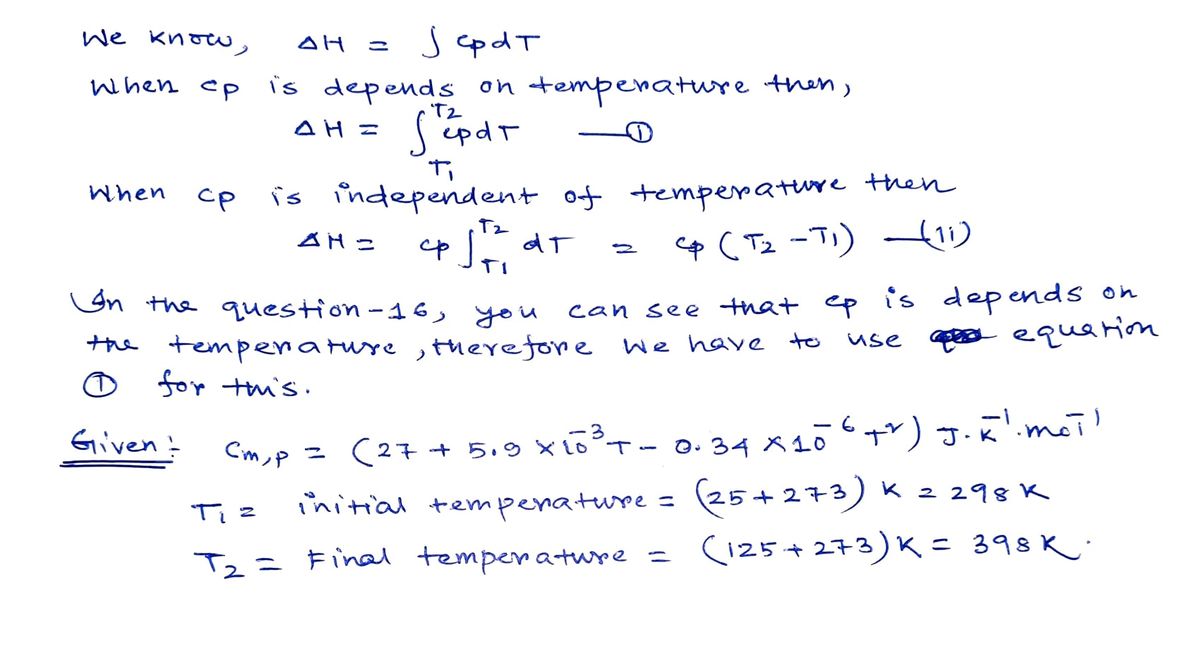 We know, ΔH = ∫ cp dT
When cp is depends on temperature then,
ΔH = ∫_{T1}^{T2} cp dT —①
When cp is independent of temperature then
ΔH = cp ∫_{T1}^{T2} dT = cp (T2 - T1) —(ii)
In the question-16, you can see that cp is depends on
the temperature, therefore we have to use equation
① for this.
Given:- Cm,p = (27 + 5.9 × 10^-3 T - 0.34 × 10^-6 T^2) J. K^-1. mol^-1
T1 = initial temperature = (25 + 273) K = 298 K
T2 = Final temperature = (125 + 273) K = 398 K.